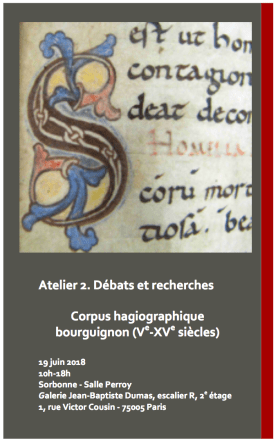 est ut hom
contagion
deat decor
Homilia
coru mort
tiosa. bea
Atelier 2. Débats et recherches
Corpus hagiographique
bourguignon (Ve-XVe siècles)
19 juin 2018
10h-18h
Sorbonne - Salle Perroy
Galerie Jean-Baptiste Dumas, escalier R, 2° étage
1, rue Victor Cousin - 75005 Paris